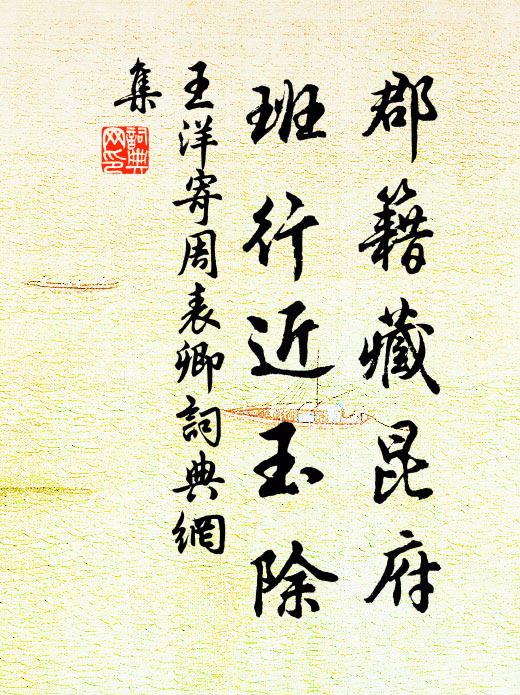 郡籍藏昆府
班行近玉除
王洋寄周表卿詞典網
集
詞典
网印